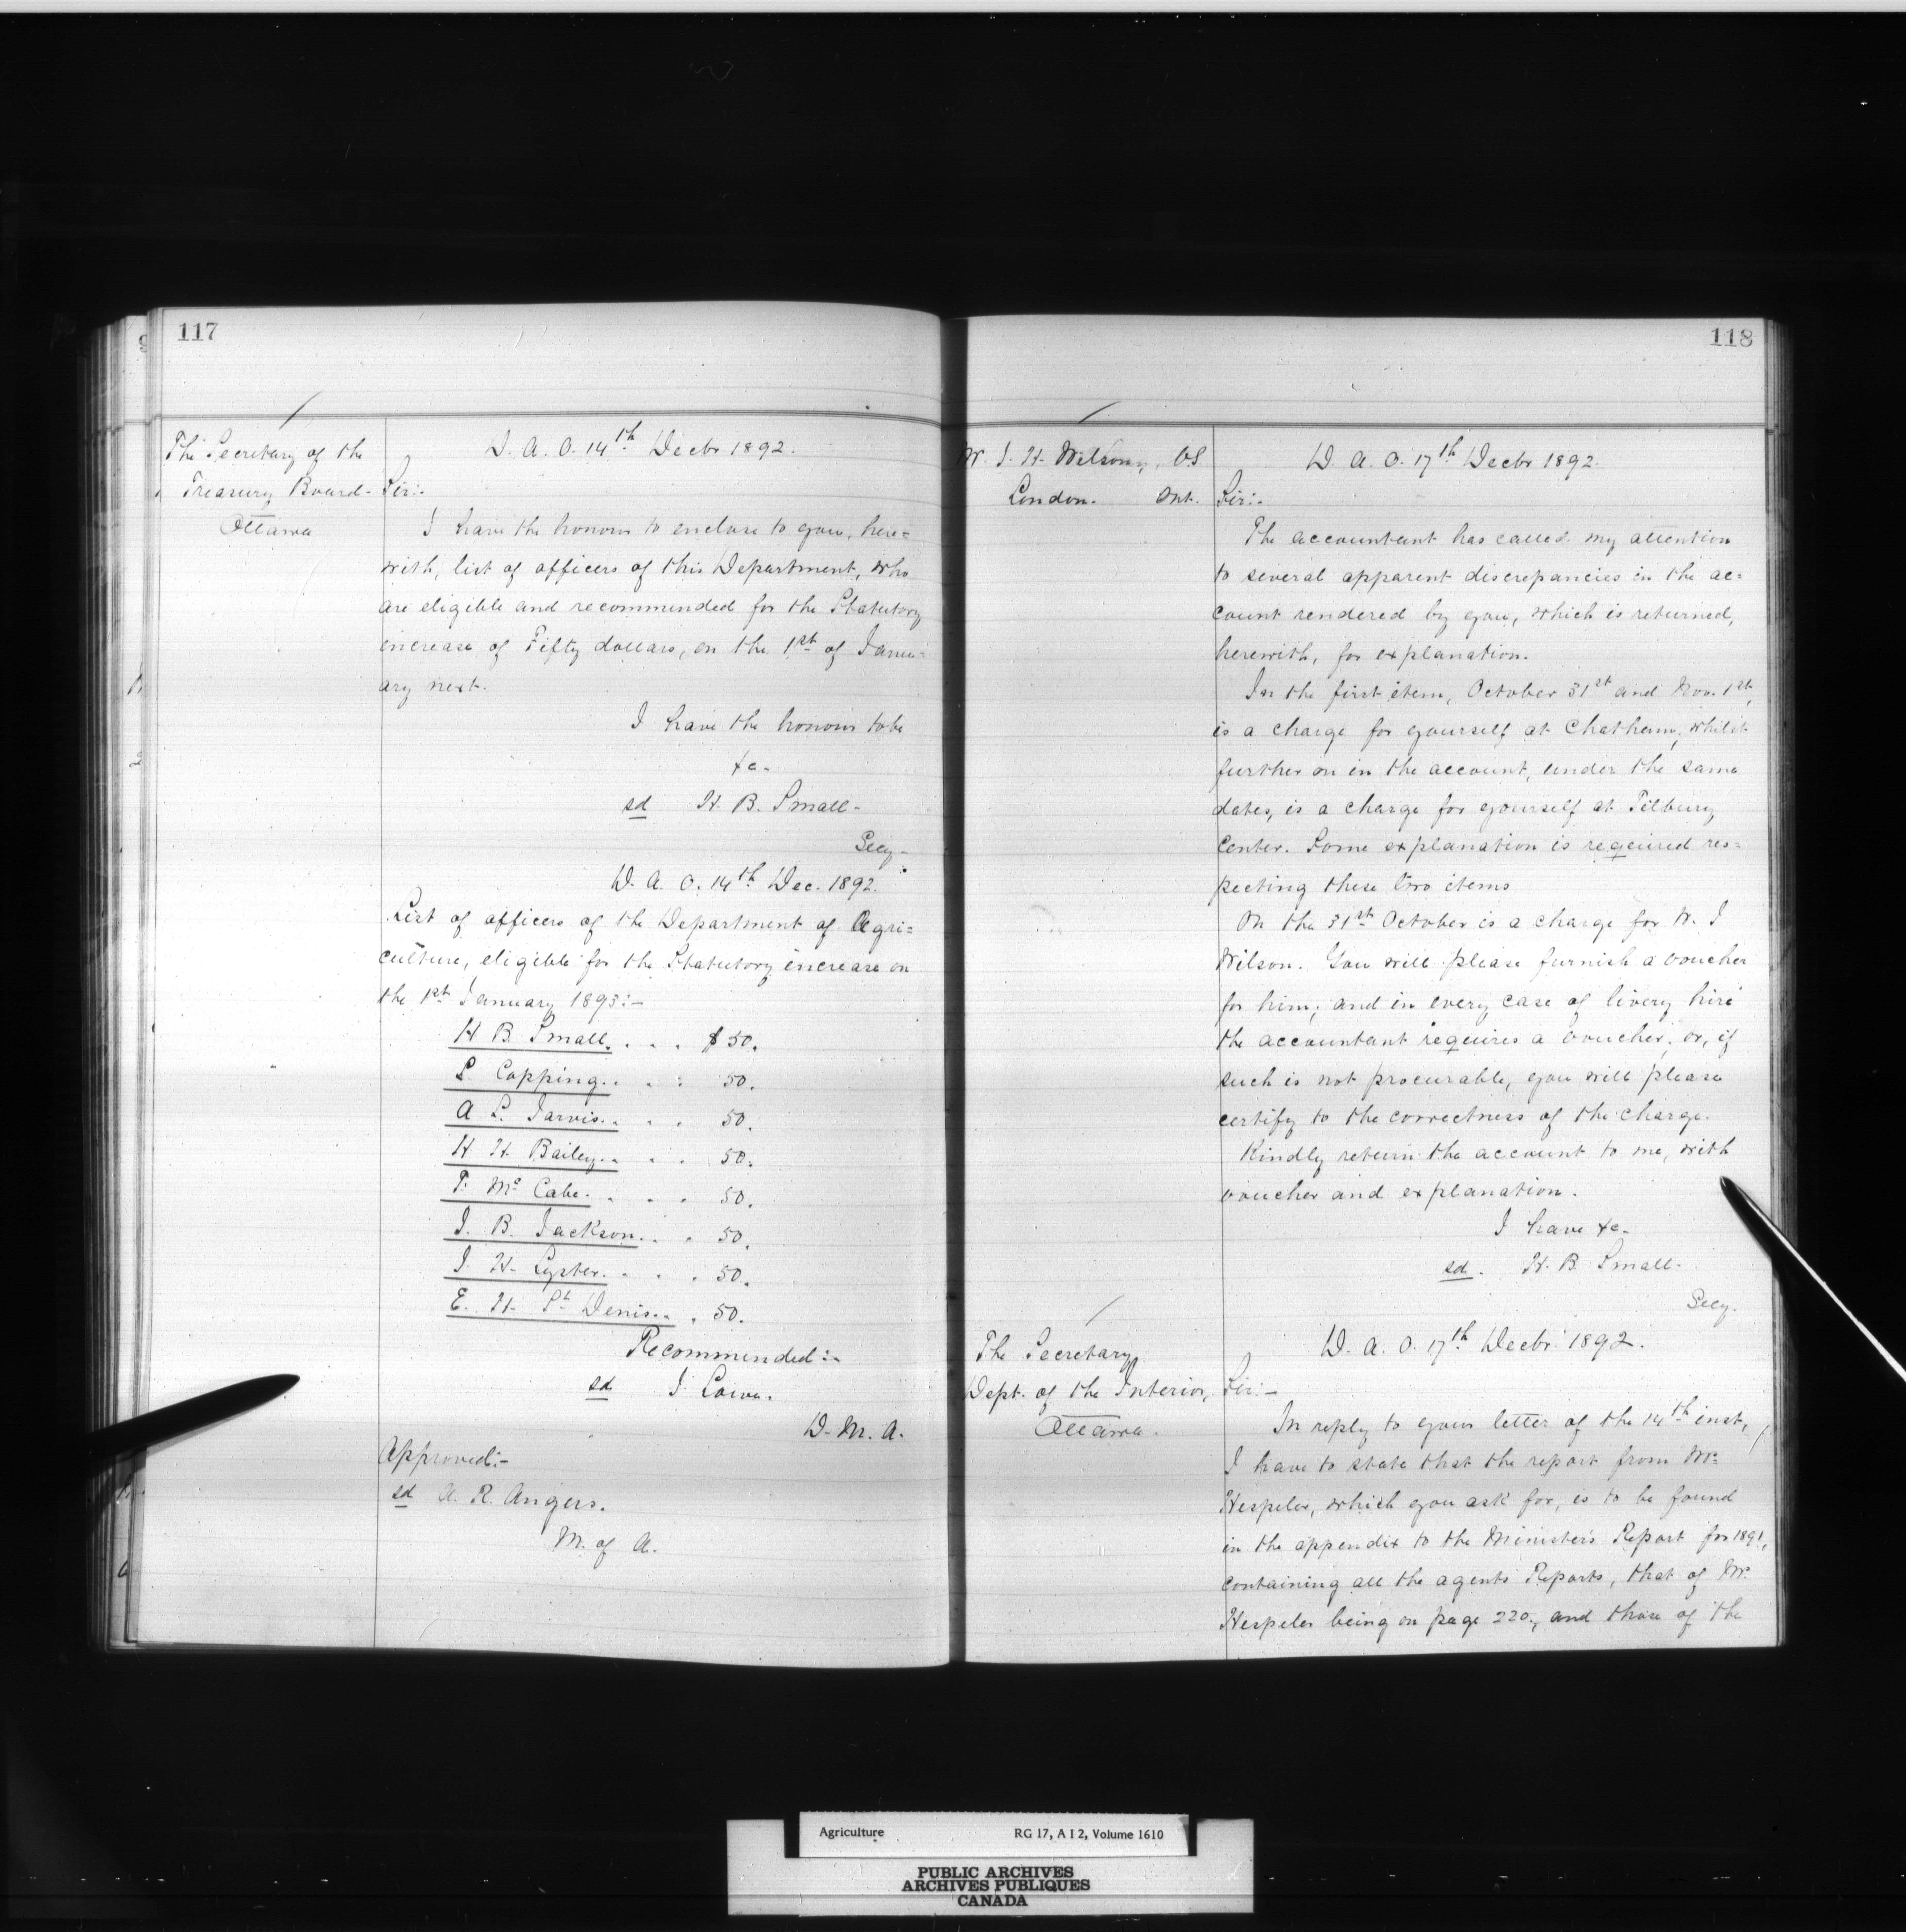 117
The Secretary of the
Treasury Board-
Ottawa
D. A. O. 14th Decbr 1892.
Sir:-
I have the honour to enclose to you, here=
with, list of officers of this Department, who
are eligible and recommended for the Statutory
increase of Fifty dollars, on the 1st of Janu=
ary next.
I have the honour to be
&c-
sd H. B. Small-
Secy-
D. A. O. 14th Dec. 1892.
List of officers of the Department of Agri=
culture, eligible for the Statutory increase on
the 1st January 1893:-
H B Small. . . . $50.
S Copping. . . . 50.
A L. Jarvis. . . . 50.
H H. Bailey. . . . 50.
T. Mc Cabe. . . . . 50.
J. B. Jackson. . . 50.
J. H. Lyster. . . . 50.
E. H. St Denis. . . 50.
Recommended:-
sd J Lowe.
D. M. A.
Approved:-
sd A. R. Angers.
M. of A.
118
W. J. H. Wilson, V.S
London. Ont.
D. A. O. 17th Decbr 1892.
Sir:-
The accountant has called my attention
to several apparent discrepancies in the ac=
count rendered by you, which is returned,
herewith, for explanation.
In the first item, October 31st and Nov. 1st,
is a charge for yourself at Chatham, whilst
further on in the account, under the same
dates, is a charge for yourself at Tilbury
Center. Some explanation is required res=
pecting these two items
On the 31st October is a charge for W. J
Wilson. You will please furnish a voucher
for him; and in every case of livery hire
the accountant requires a voucher; or, if
such is not procurable, you will please
certify to the correctness of the charge.
Kindly return the account to me, with
voucher and explanation.
I have &c-
sd. H. B. Small-
Secy.
The Secretary,
Dept. of the Interior,
Ottawa.
D. A. O. 17th Decbr 1892.
Sir:-
In reply to your letter of the 14th inst,
I have to state that the report from Mr.
Hespeler, which you ask for, is to be found
in the appendix to the Minister's Report for 1891,
containing all the agents Reports, that of Mr.
Hespeler being on page 220, and those of the
Agriculture RG 17, A I 2, Volume 1610
PUBLIC ARCHIVES
ARCHIVES PUBLIQUES
CANADA